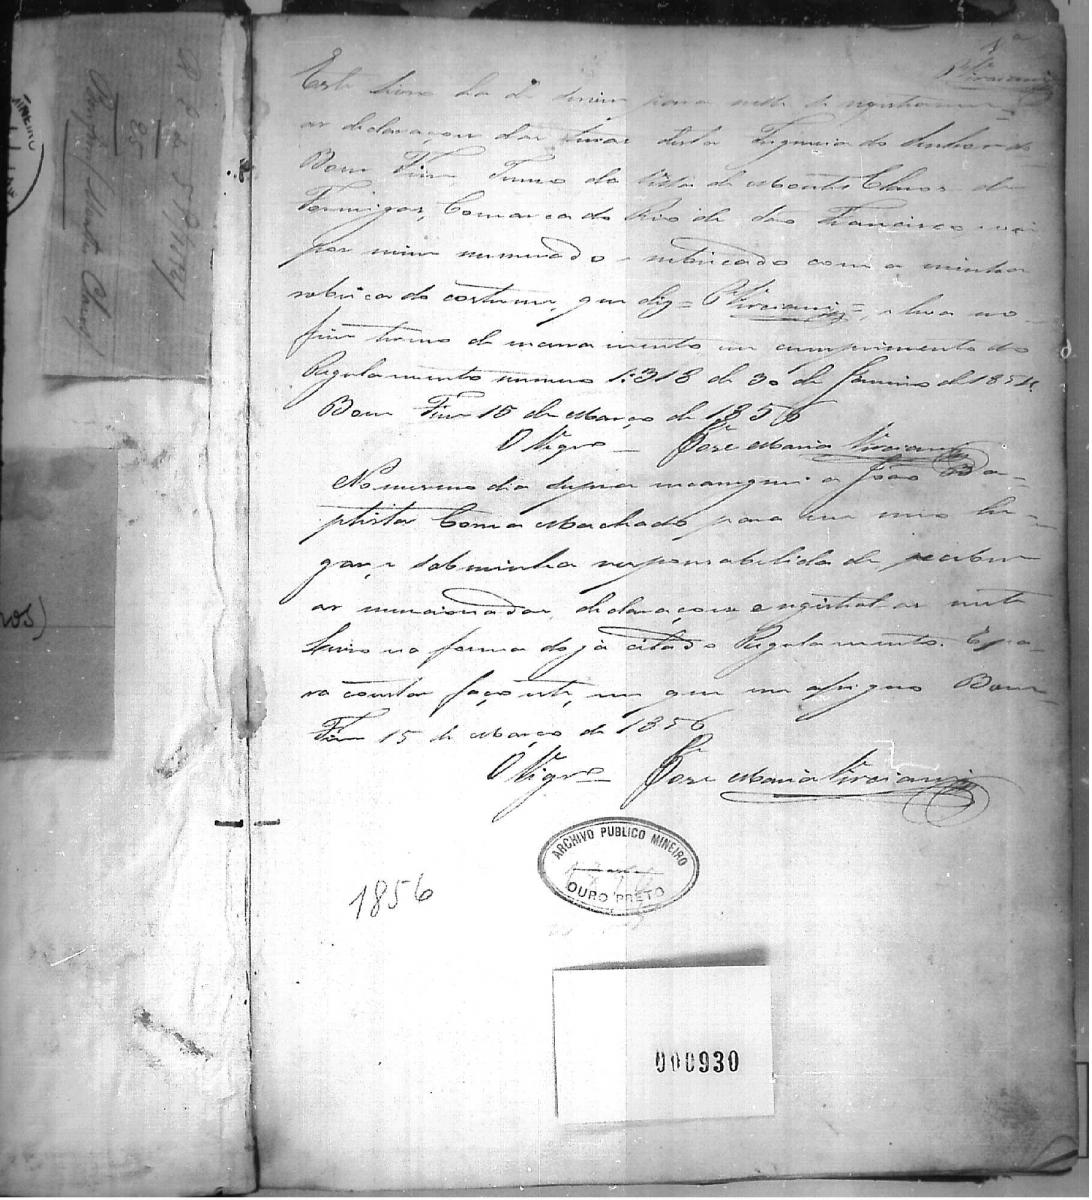 1ª
Versiani
Este livro ha de servir para nelle se registrarem
as declaraçoens das terras desta Freguesia do Senhor do
Bom Fim, Termo da Villa de Montes Claros de
Formigas, Comarca do Rio de São Francisco, vai
por mim numerado e rubricado com a minha
rubrica do costume, que diz = Versiani =, e leva no
fim termo de encerramento em cumprimento do
Regulamento numero 1:318 de 30 de Janeiro de 1854
Bom Fim 15 de Março de 1856
O Vigro José Maria Versiani
No mesmo dia supra encarreguei a João Ba-
ptista Correa Machado para em meo lu-
gar, e sob minha responsabelidade, receber
as mencionadas declaraçoens e registral as neste
livro na forma do já citado Regulamento. E pa-
ra constar faço este, em que me assigno Bom
Fim 15 de Março de 1856
O Vigro José Maria Versiani
ARCHIVO PUBLICO MINEIRO
OURO PRETO
1856
000930